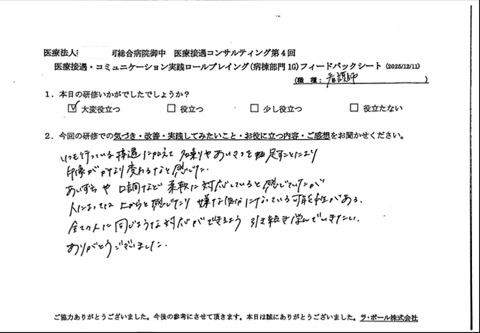 医療法人 町総合病院御中 医療接遇コンサルティング第4回
医療接遇・コミュニケーション実践ロールプレイング(病棟部門1G)フィードバックシート(2025/12/11)
(職 種:看護師)
1.本日の研修いかがでしたでしょうか?
☑大変役立つ □役立つ □少し役立つ □役立たない
2.今回の研修での気づき・改善・実践してみたいこと・お役に立つ内容・ご感想をお聞かせください。
いつも行っている接遇に加えて 名乗りやあいさつを 足すことにより
印象がかなり変わるなと感じた。
あいづちや口調など柔軟に対応していると感じていたが
人によっては上からと感じたり 嫌な気分になっている可能性がある。
全ての人に同じような対応ができるよう 引き続き学んでいきたい。
ありがとうございました。
ご協力ありがとうございました。今後の参考にさせて頂きます。本日は誠にありがとうございました。ラ・ポール株式会社